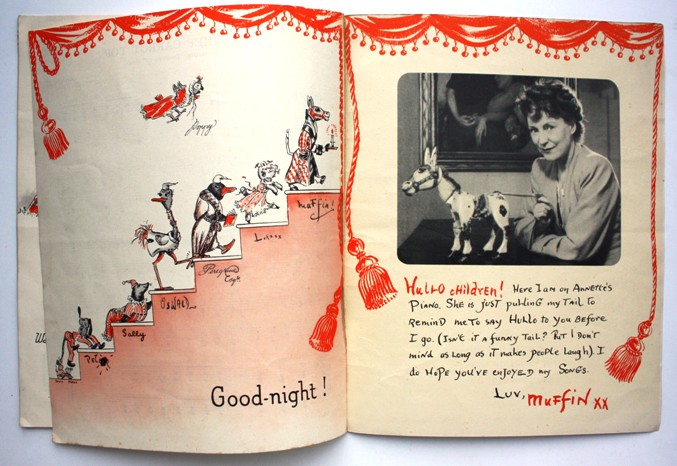 Poppy
Muffin!
Louise
Peregrine
Esqre
OsWALD
Sally
Peter
We
Good-night !
HuLLO children! Here I am on Annette's
Piano. She is just pulling my tail to
Remind me To say Hullo to you Before
I go. (Isn't it a funny Tail? But I Don't
mind as long as it makes people laugh). I
do Hope you've enjoyed my Songs.
Luv, muffin xx